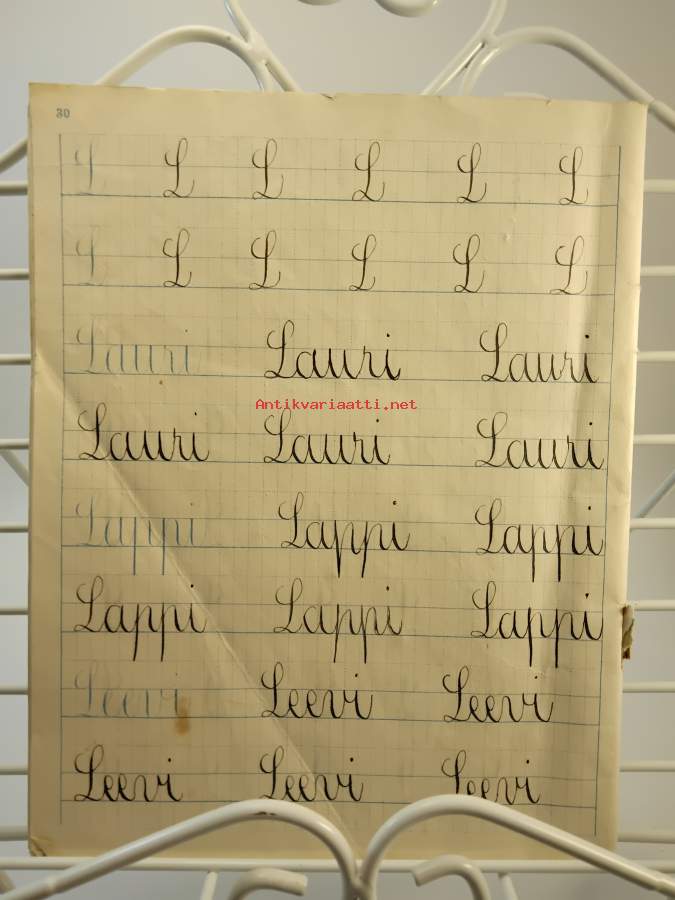 30
L L L L L L
L L L L L L
Lauri Lauri Lauri
Antikvariaatti.net
Lauri Lauri Lauri
Lappi Lappi Lappi
Lappi Lappi Lappi
Leevi Leevi Leevi
Leevi Leevi Leevi